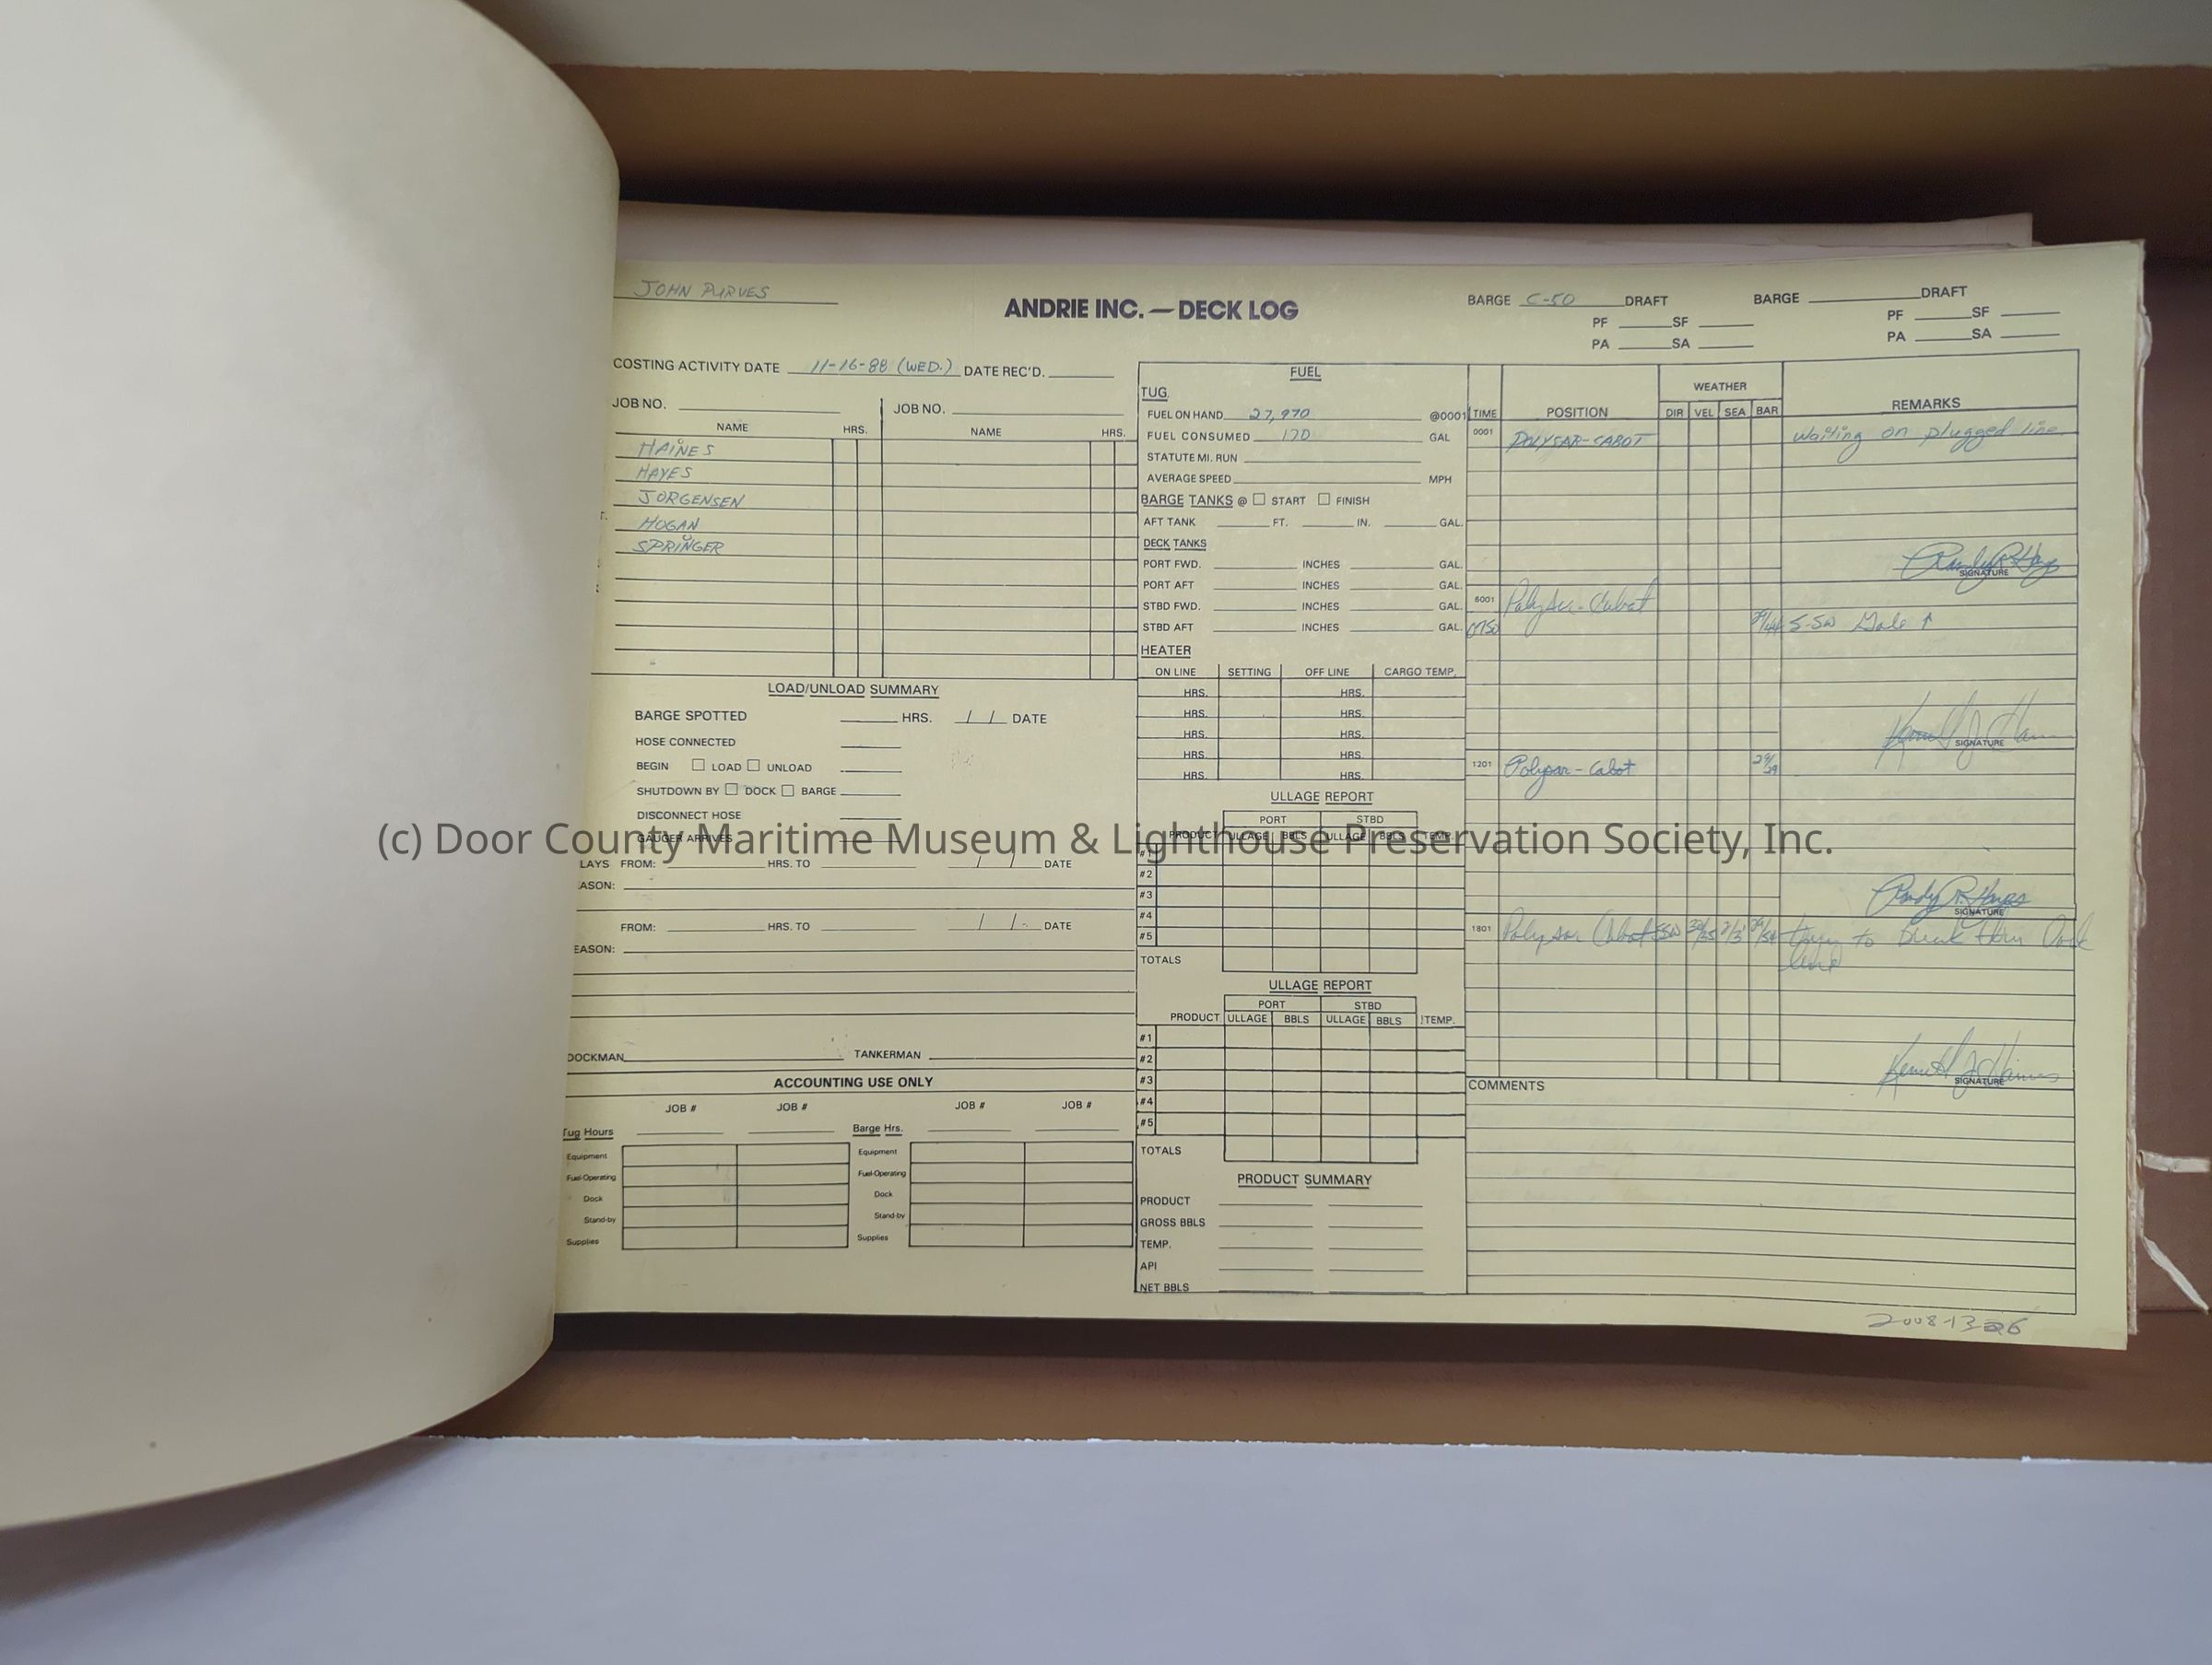 JOHN PURVES
ANDRIE INC. — DECK LOG
BARGE C-50 DRAFT
PF SF
PA SA
BARGE DRAFT
PF SF
PA SA
COSTING ACTIVITY DATE 11-16-88 (WED.) DATE REC'D.
JOB NO. JOB NO.
NAME HRS. NAME HRS.
HAINES
HAYES
JORGENSEN
HOGAN
SPRINGER
LOAD/UNLOAD SUMMARY
BARGE SPOTTED HRS. / / DATE
HOSE CONNECTED
BEGIN LOAD UNLOAD
SHUTDOWN BY DOCK BARGE
DISCONNECT HOSE
GAUGER ARRIVES
LAYS FROM: HRS. TO / / DATE
ASON:
FROM: HRS. TO / / DATE
EASON:
DOCKMAN TANKERMAN
ACCOUNTING USE ONLY
JOB # JOB # JOB # JOB #
Tug Hours Barge Hrs.
Equipment Equipment
Fuel-Operating Fuel-Operating
Dock Dock
Stand-by Stand-by
Supplies Supplies
FUEL
TUG
FUEL ON HAND 27,970 @0001
FUEL CONSUMED 170 GAL
STATUTE MI. RUN
AVERAGE SPEED MPH
BARGE TANKS @ START FINISH
AFT TANK FT. IN. GAL.
DECK TANKS
PORT FWD. INCHES GAL.
PORT AFT INCHES GAL
STBD FWD. INCHES GAL.
STBD AFT INCHES GAL.
HEATER
ON LINE SETTING OFF LINE CARGO TEMP.
HRS. HRS.
HRS. HRS.
HRS. HRS.
HRS. HRS.
HRS. HRS.
ULLAGE REPORT
PORT STBD
PRODUCT ULLAGE BBLS ULLAGE BBLS TEMP.
#1
#2
#3
#4
#5
TOTALS
ULLAGE REPORT
PORT STBD
PRODUCT ULLAGE BBLS ULLAGE BBLS TEMP.
#1
#2
#3
#4
#5
TOTALS
PRODUCT SUMMARY
PRODUCT
GROSS BBLS
TEMP.
API
NET BBLS
WEATHER
TIME POSITION DIR VEL SEA BAR REMARKS
0001 POLYSAR-CABOT Waiting on plugged line
Randy R Hays
SIGNATURE
6001 Polysar-Cabot
0750 29/44 S-SW Gale ↑
Kenneth J Haines
SIGNATURE
1201 Polysar-Cabot 29/39
Randy R. Hayes
SIGNATURE
1801 Polysar Cabot SSW 2/3 to break Dock
line
Kenneth J Haines
SIGNATURE
COMMENTS
2008-13
(c) Door County Maritime Museum & Lighthouse Preservation Society, Inc.